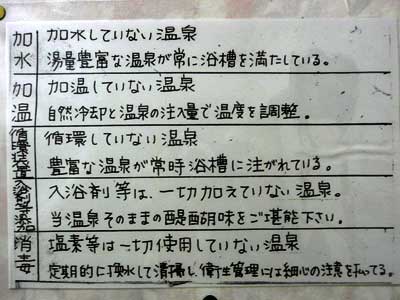 加水
加水していない温泉
湯量豊富な温泉が常に浴槽を満たしている。
加温
加温していない温泉
自然冷却と温泉の注入量で温度を調整.
循環装置
循環していない温泉
豊富な温泉が常時浴槽に注がれている。
入浴剤等添加
入浴剤等は、一切加えていない温泉。
当温泉そのままの醍醐味をご堪能下さい。
消毒
塩素等は一切使用していない温泉
定期的に換水して清掃し、衛生管理には細心の注意を払ってる。